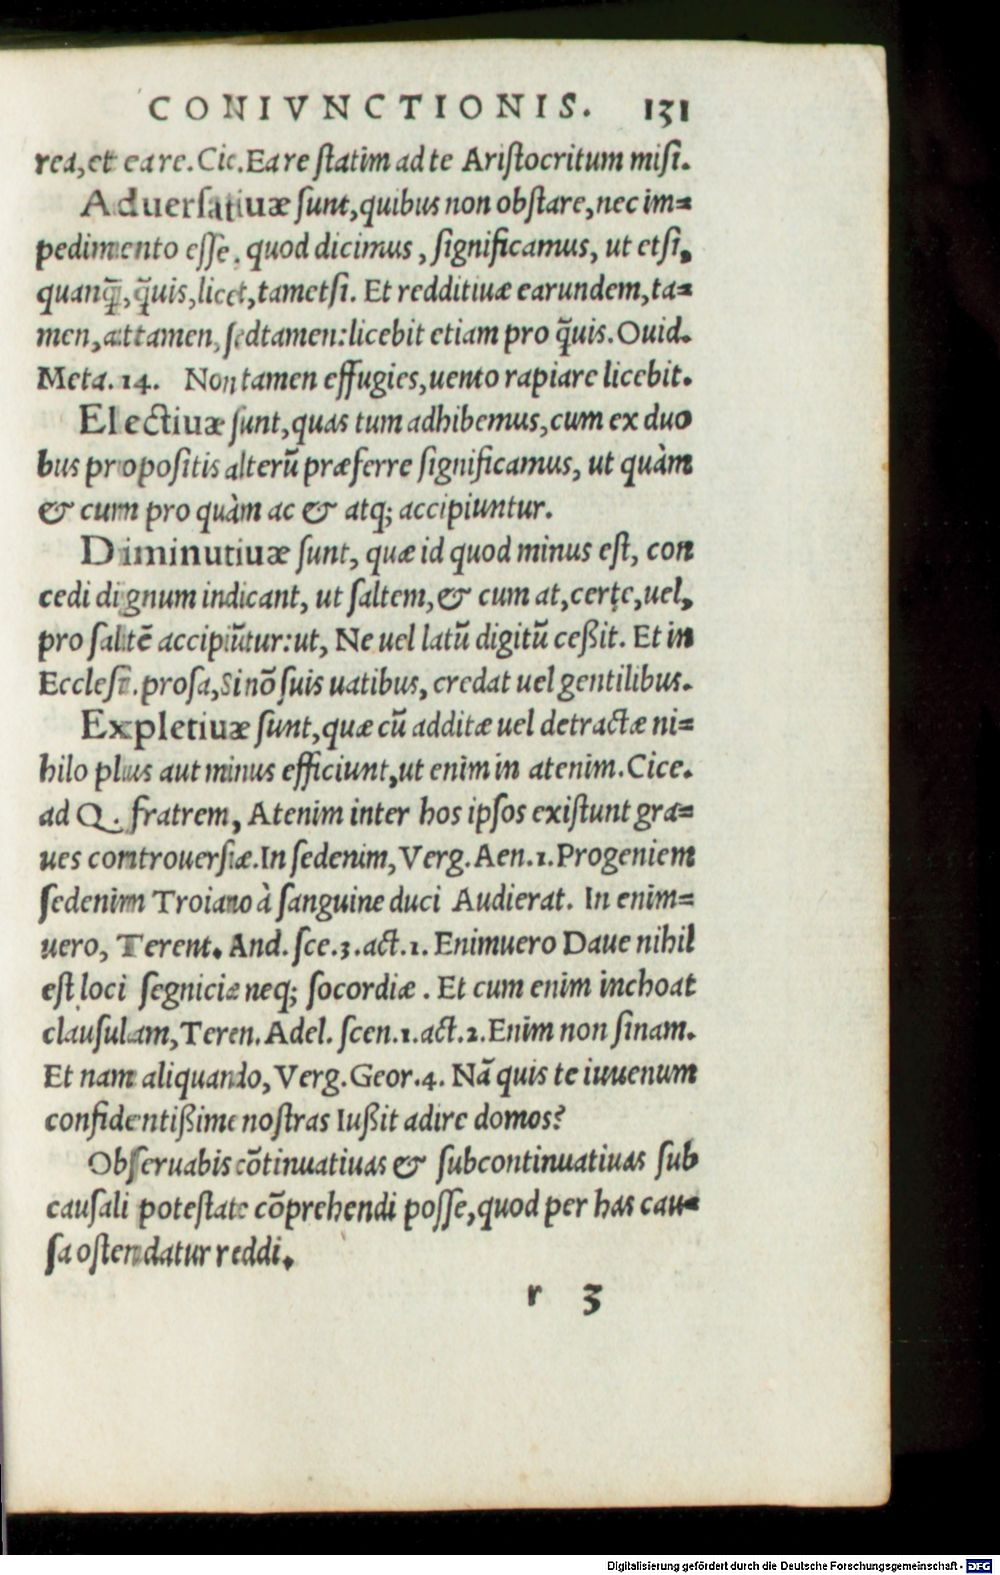 CONIVNCTIONIS. 131
rea, et eare. Cic. Eare ſtatim ad te Ariſtocritum miſi.
Aduerſatiuæ ſunt, quibus non obſtare, nec im=
pedimento eſſe, quod dicimus, ſignificamus, ut etſi,
quanq̃, q̃uis, licet, tametſi. Et redditiuæ earundem, ta=
men, attamen, ſedtamen: licebit etiam pro q̃uis. Ouid.
Meta. 14. Non tamen effugies, uento rapiare licebit.
Electiuæ ſunt, quas tum adhibemus, cum ex duo
bus propoſitis alterũ præferre ſignificamus, ut quàm
& cum pro quàm ac & atq; accipiuntur.
Diminutiuæ ſunt, quæ id quod minus eſt, con
cedi dignum indicant, ut ſaltem, & cum at, certe, uel,
pro ſaltẽ accipiũtur: ut, Ne uel latũ digitũ ceßit. Et in
Eccleſi. proſa, Si nõ ſuis uatibus, credat uel gentilibus.
Expletiuæ ſunt, quæ cũ additæ uel detractæ ni=
hilo plus aut minus efficiunt, ut enim in atenim. Cice.
ad Q. fratrem, Atenim inter hos ipſos exiſtunt gra=
ues controuerſiæ. In ſedenim, Verg. Aen. 1. Progeniem
ſedenim Troiano à ſanguine duci Audierat. In enim=
uero, Terent. And. ſce. 3. act. 1. Enimuero Daue nihil
eſt loci ſegniciæ neq; ſocordiæ. Et cum enim inchoat
clauſulam, Teren. Adel. ſcen. 1. act. 2. Enim non ſinam.
Et nam aliquando, Verg. Geor. 4. Nã quis te iuuenum
confidentißime noſtras Iußit adire domos?
Obſeruabis cõtinuatiuas & ſubcontinuatiuas ſub
cauſali poteſtate cõprehendi poſſe, quod per has cau=
ſa oſtendatur reddi.
r 3
Digitalisierung gefördert durch die Deutsche Forschungsgemeinschaft - DFG